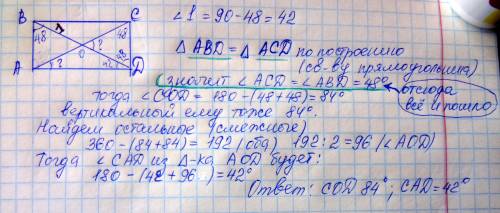 B C
1
48 48
O ?
48
? 42
A D
∠1 = 90-48 = 42
Δ ABD = Δ ACD по построению
(св-ву прямоугольника)
(значит ∠ACD = ∠ABD = 48°
отсюда
всё и пошло
тогда ∠COD = 180 - (48+48) = 84°
вертикальный ему тоже 84°.
Найдем остальное (смежное)
360 - (84+84) = 192 (оба) 192 : 2 = 96 (∠AOD)
Тогда ∠CAD из Δ-ка AOD будет:
180 - (42 + 96) = 42°
Ответ: COD 84°; CAD = 42°